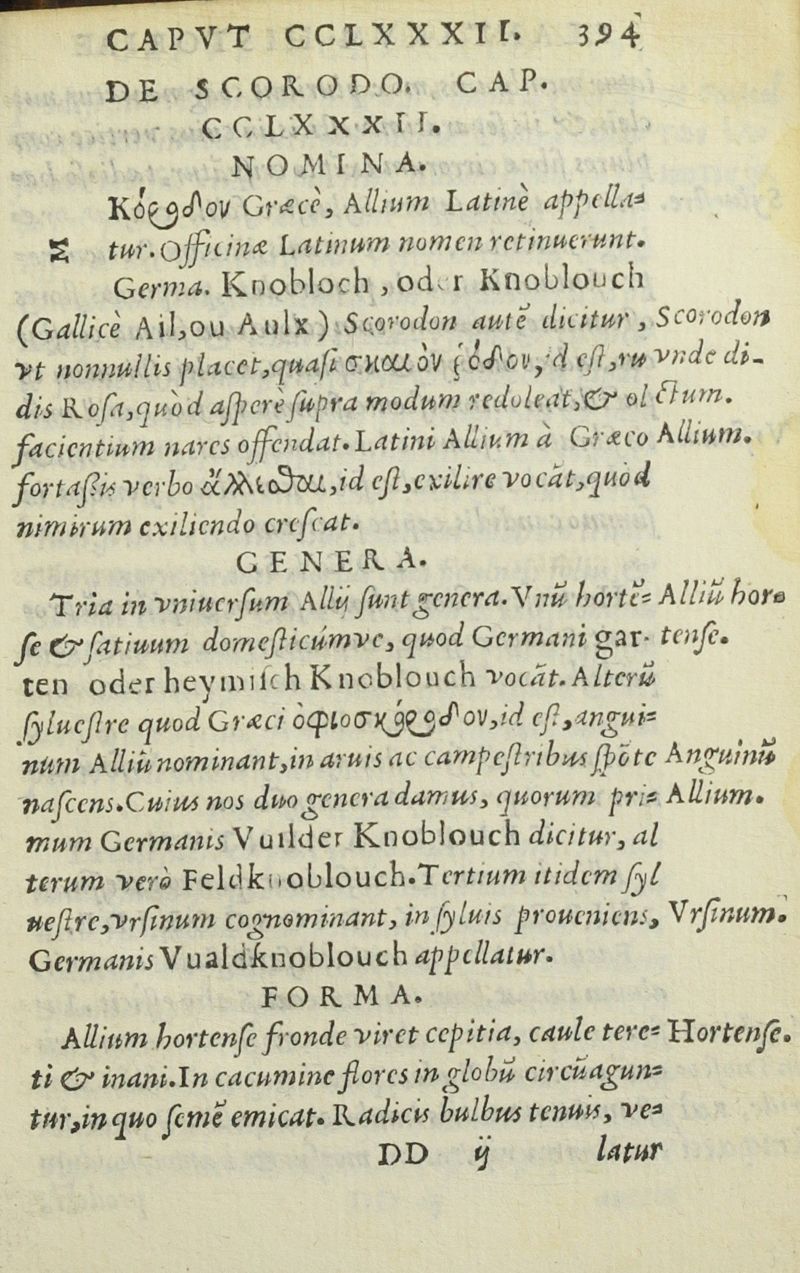 CAPVT CCLXXXII. 394
DE SCORODO. CAP.
CCLXXXII.
NOMINA.
Κόροδον Græcè, Allium Latinè appella=
tur. Officinæ Latinum nomen retinuerunt.
Germa. Knobloch, oder Knoblouch
(Gallicè Ail, ou Aulx) Scorodon autē dicitur, Scorodon
vt nonnullis placet, quaſi σκαιὸν ῥόδον, id eſt, vnde di-
dis Roſa, quòd aſpere ſupra modum redoleat, & ol ctum.
facientium nares offendat. Latini Allium à Græco Allium.
fortaſsis verbo ἅλλεσθαι, id eſt, exilire vocāt, quòd
nimirum exiliendo creſcat.
GENERA.
Tria in vniuerſum Allij ſunt genera. Vnū hortē= Alliū hor=
ſe & ſatiuum domeſticúmve, quod Germani gar- tenſe.
ten oder heymiſch Knoblouch vocāt. Alterū
ſylueſtre quod Græci ὀφιοσκόροδον, id eſt, angui=
num Alliū nominant, in aruis ac campeſtribus ſpōte Anguinū
naſcens. Cuius nos duo genera damus, quorum pri= Allium.
mum Germanis Vuilder Knoblouch dicitur, al
terum verò Feldknoblouch. Tertium itidem ſyl
ueſtre, vrſinum cognominant, in ſyluis proueniens, Vrſinum.
Germanis Vualdknoblouch appellatur.
FORMA.
Allium hortenſe fronde viret cepitia, caule tere= Hortenſe.
ti & inani. In cacumine flores in globū circūagun=
tur, in quo ſemē emicat. Radicis bulbus tenuis, ve=
DD ij latur